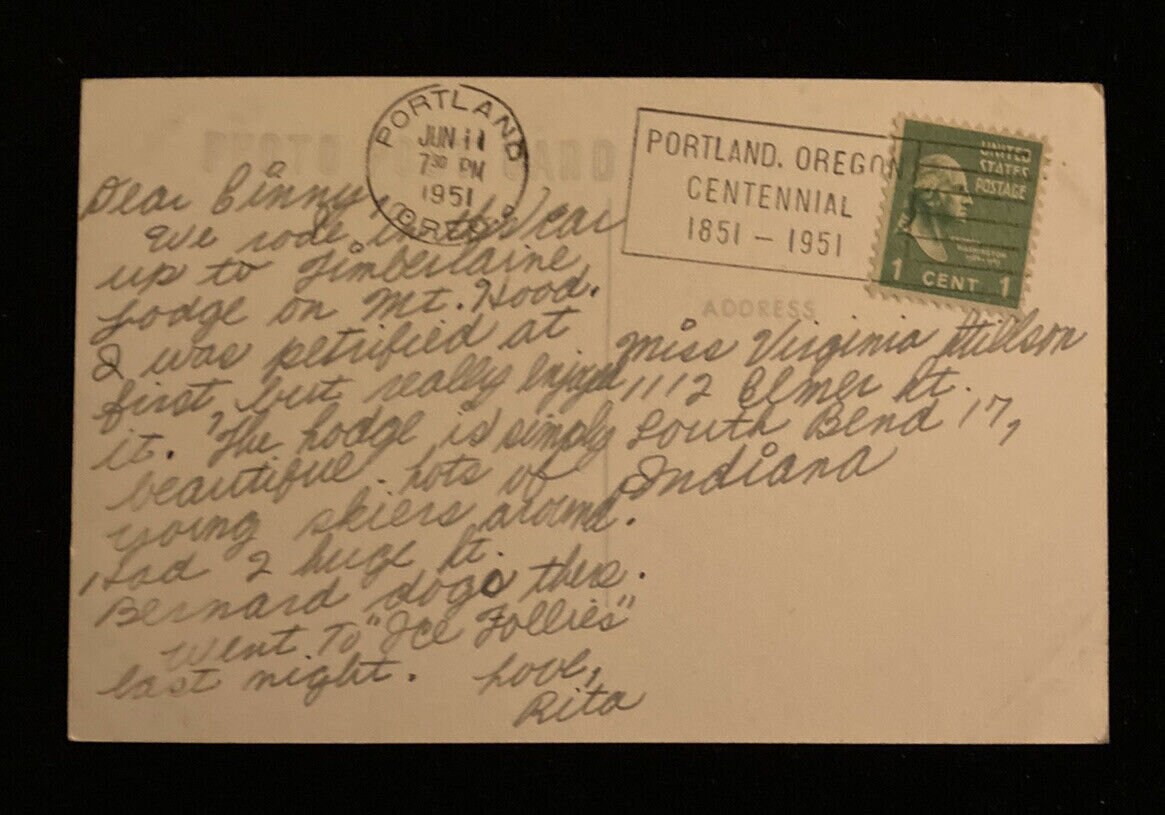 PORTLAND
JUN 11
7 30 PM
1951
OREG.
PORTLAND, OREGON
CENTENNIAL
1851 - 1951
UNITED
STATES
POSTAGE
WASHINGTON
1 CENT 1
Dear Ginny,
We rode in the car
up to Timberlaine
Lodge on Mt. Hood.
I was petrified at
first, but really enjoyed
it. The Lodge is simply
beautiful. Lots of
young skiers around.
Had 2 huge St.
Bernard dogs there.
Went to "Ice Follies"
last night. Love,
Rita
ADDRESS
Miss Virginia Hillson
1112 Elmer St.
South Bend 17,
Indiana